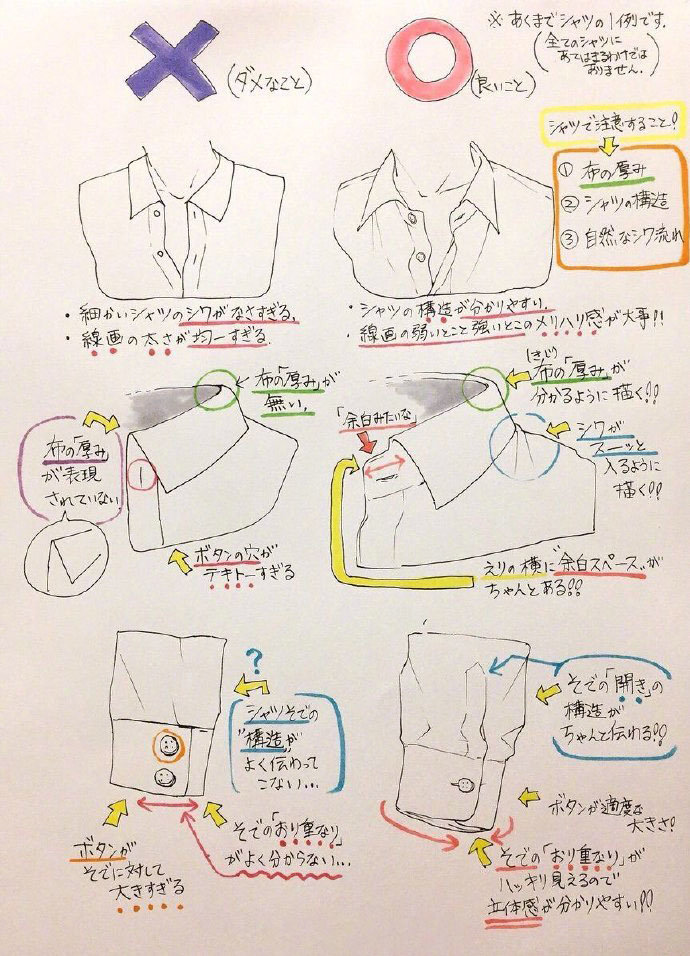 ※あくまでシャツの1例です。
(全てのシャツに
あてはまるわけでは
ありません。)
(ダメなこと)
(良いこと)
シャツで注意すること!
① 布の厚み
② シャツの構造
③ 自然なシワ流れ
・細かいシャツのシワがなさすぎる。
・線画の太さが均一すぎる。
・シャツの構造が分かりやすい。
・線画の弱いとこと強いとこのメリハリ感が大事!!
布の「厚み」が
無い。
布の「厚み」
が表現
されていない
ボタンの穴が
テキトーすぎる
(きじ)
布の「厚み」が
分かるように描く!!
「余白みたいな」
シワが
スーッと
入るように
描く!!
えりの横に"余白スペース"が
ちゃんとある!!
?
シャツそでの
"構造"が
よく伝わって
こない…
ボタンが
そでに対して
大きすぎる
そでの「おり重なり」
がよく分からない…
そでの「開き」の
構造が
ちゃんと伝わる!!
ボタンが適度な
大きさ!
そでの「おり重なり」が
ハッキリ見えるので
立体感が分かりやすい!!